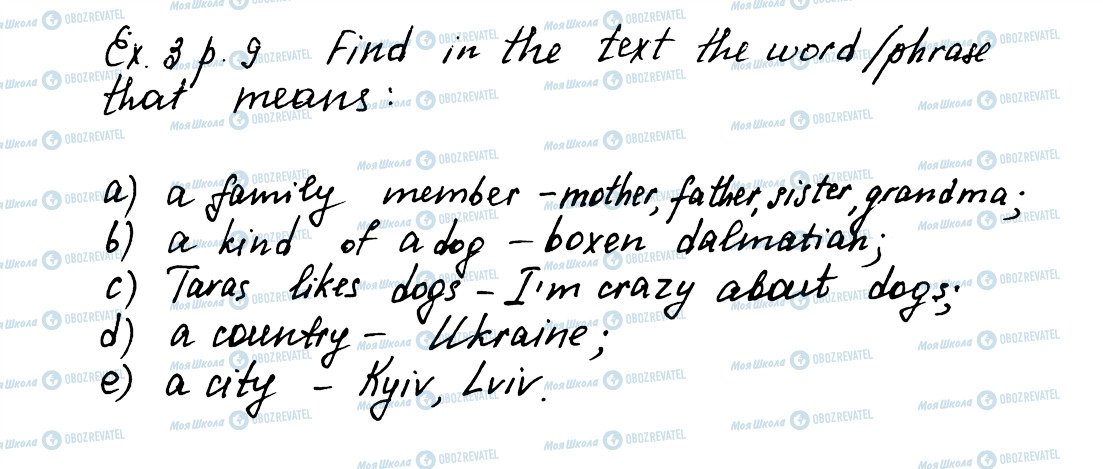 Ex. 3 p. 9 Find in the text the word/phrase
that means:
a) a family member – mother, father, sister, grandma;
b) a kind of a dog – boxen dalmatian;
c) Taras likes dogs – I'm crazy about dogs;
d) a country – Ukraine;
e) a city – Kyiv, Lviv.